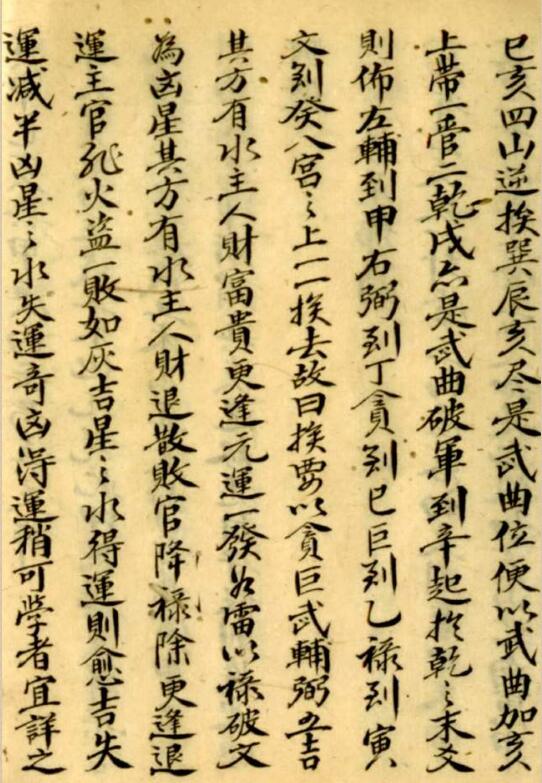 巳亥四山逆挨巽辰亥尽是武曲位便以武曲加亥
上带一管二乾戌亦是武曲破軍到辛起於乾之末爻
則佈左輔到申右弼到丁貪到巳巨到乙禄到寅
文到癸八宫之上一一挨去故曰挨要以貪巨武輔弼五吉
其方有水主人財富貴更逢元運一發如雷以禄破文
為凶星其方有水主人財退散敗官降禄除更逢退
運主官非火盜一敗如灰吉星之水得運則愈吉失
運减半凶星之水失運奇凶淂運稍可學者宜詳之